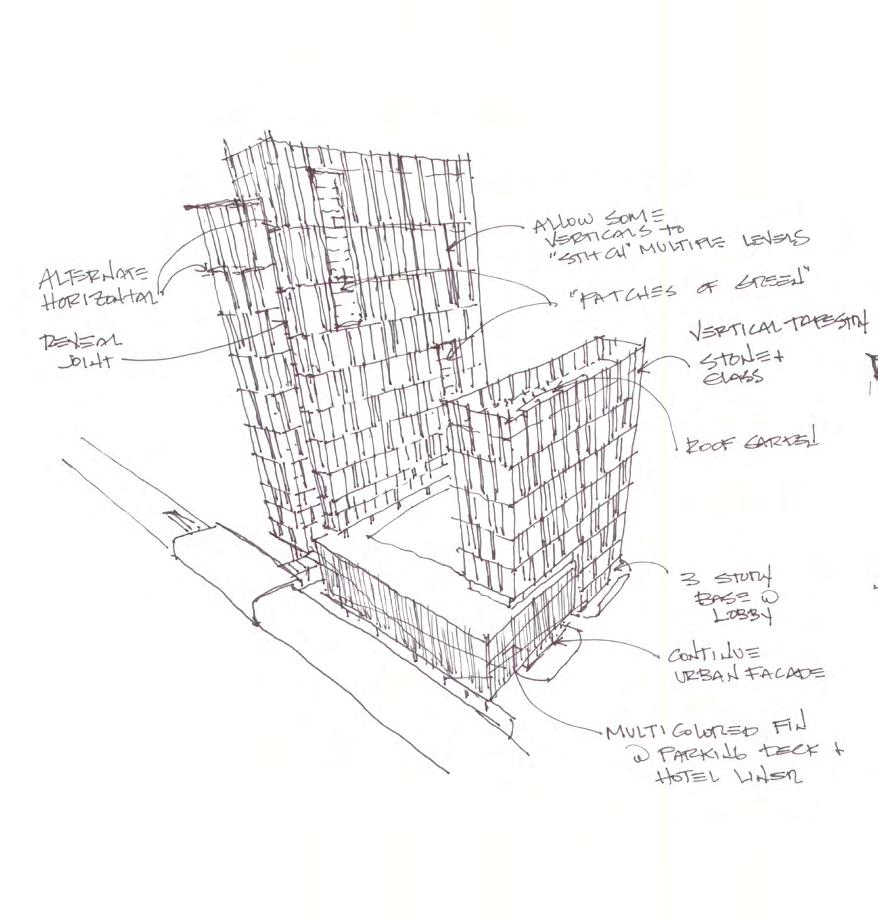 ALLOW SOME
VERTICALS TO
"STITCH" MULTIPLE LEVELS
ALTERNATE
HORIZONTAL
"PATCHES OF GREEN"
REVEAL
JOINT
VERTICAL TAPESTRY
STONE +
GLASS
ROOF GARDEN
3 STORY
BASE @
LOBBY
CONTINUE
URBAN FACADE
MULTI COLORED FIN
@ PARKING DECK +
HOTEL LINER